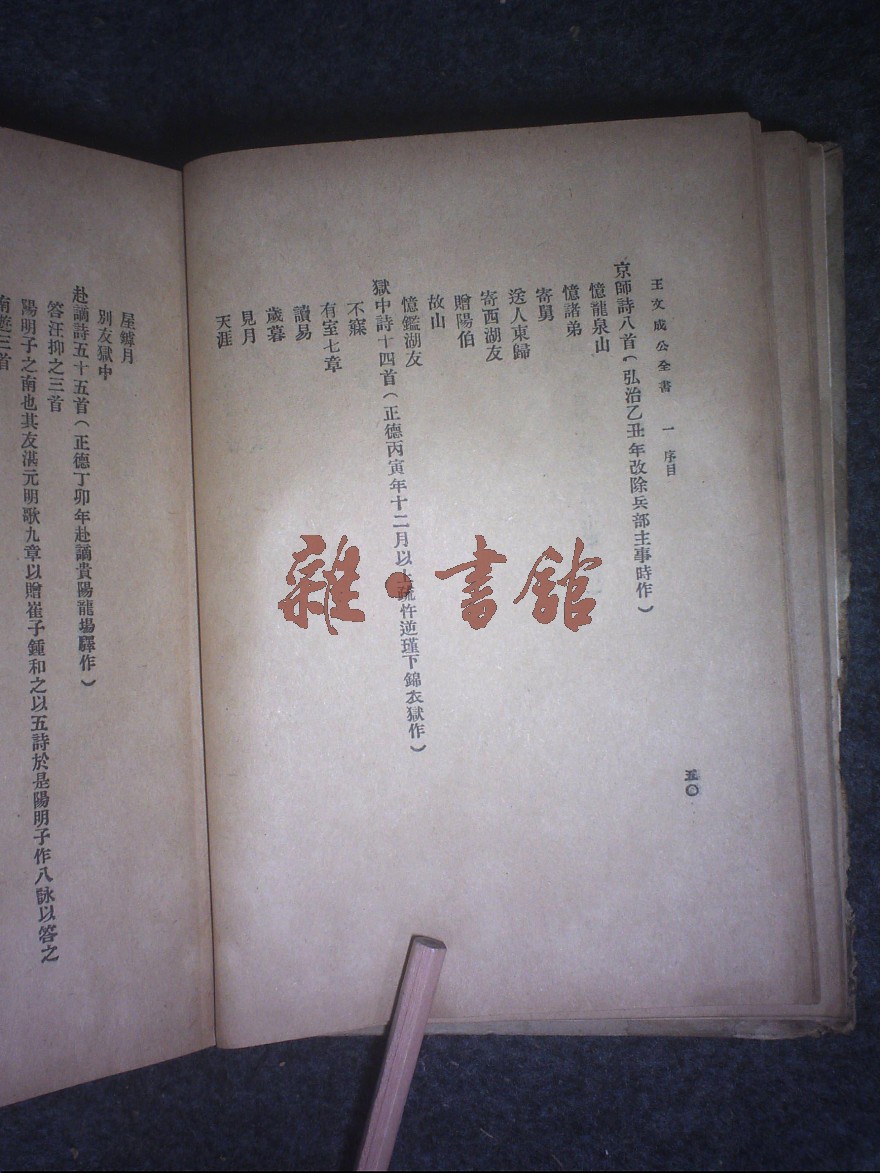 王文成公全書 一 序目 五〇
京師詩八首(弘治乙丑年改除兵部主事時作)
憶龍泉山
憶諸弟
寄舅
送人東歸
寄西湖友
贈陽伯
故山
憶鑑湖友
獄中詩十四首(正德丙寅年十二月以上疏忤逆瑾下錦衣獄作)
不寐
有室七章
讀易
歲暮
見月
天涯
屋罅月
別友獄中
赴謫詩五十五首(正德丁卯年赴謫貴陽龍場驛作)
答汪抑之三首
陽明子之南也其友湛元明歌九章以贈崔子鍾和之以五詩於是陽明子作八詠以答之
南遊三首
雜·書館